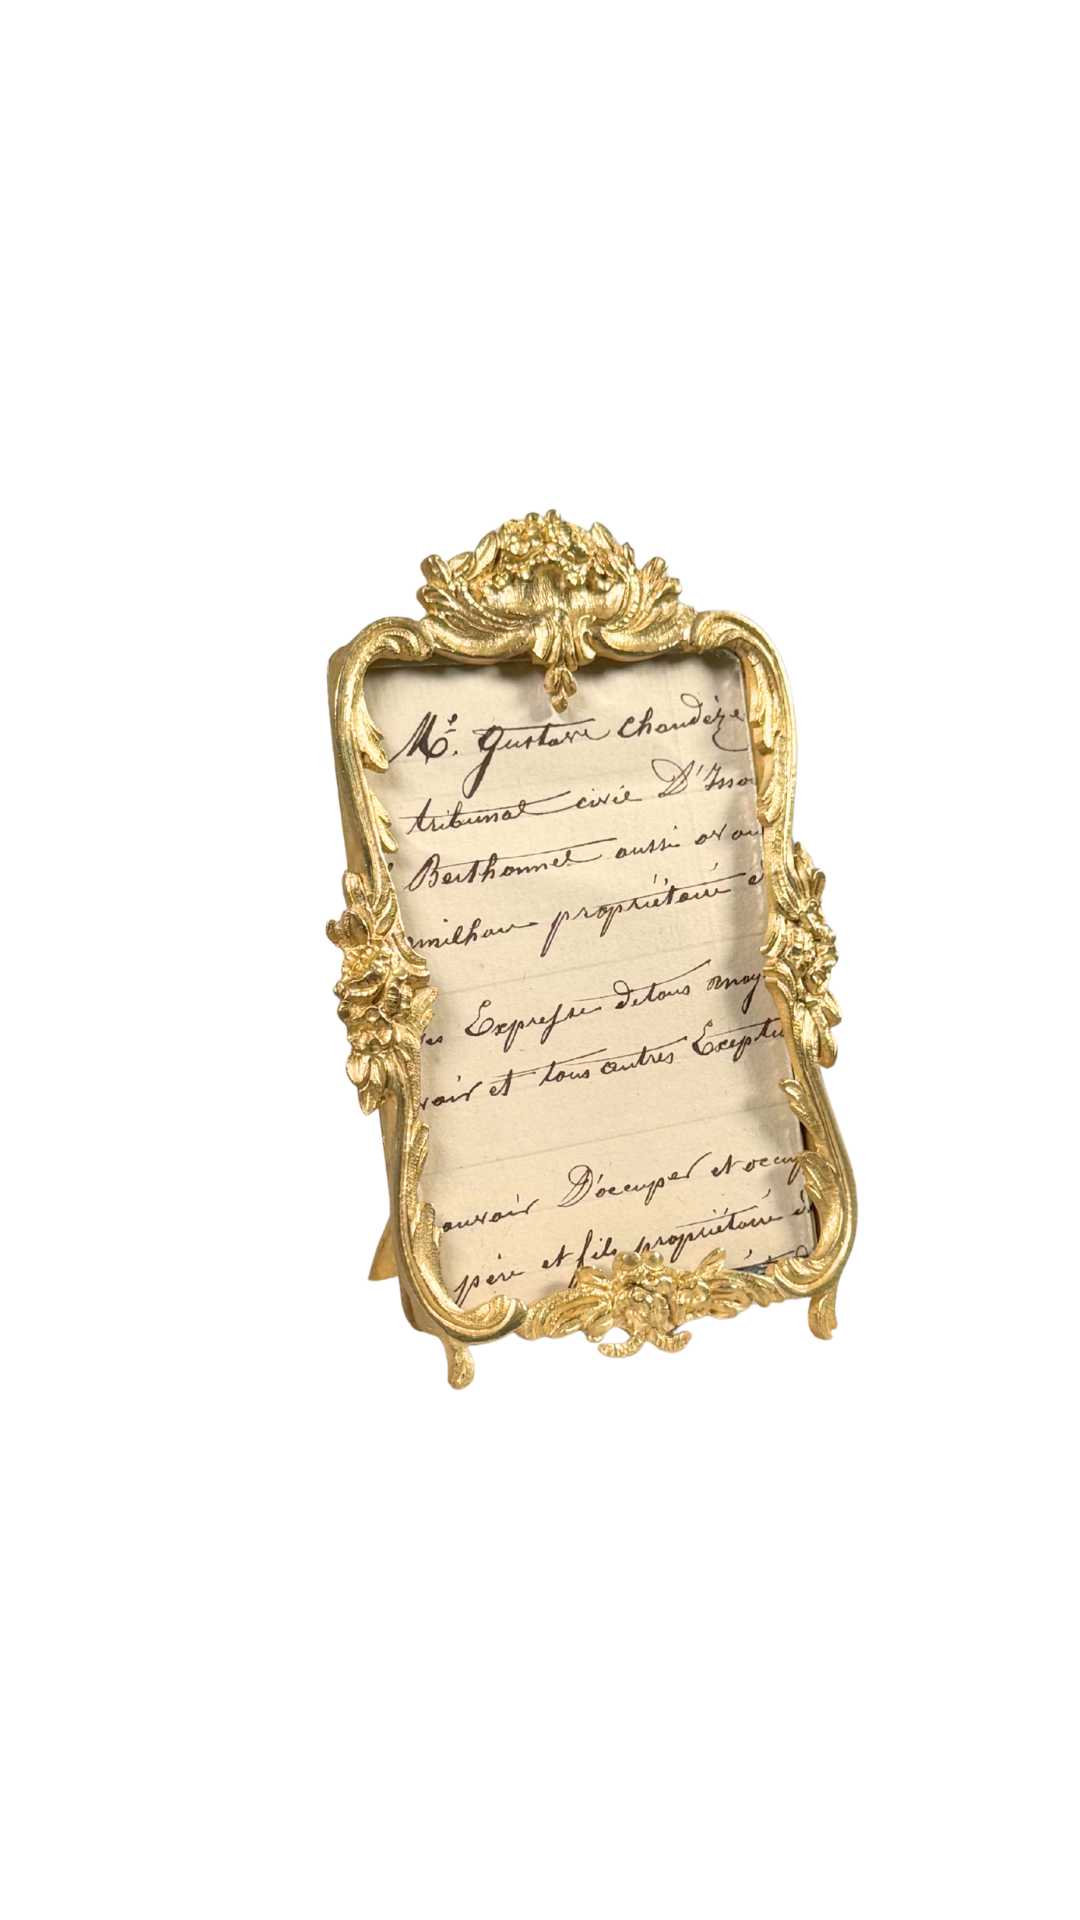 Me. Gustave Chaudèze
tribunal civil D'Isso
Berthonnet aussi avou
milhau propriétaire à
es Expresse de tous moy
voir et tous autres Exceptio
ouvoir D'occuper et occup
père et fils propriétaire à